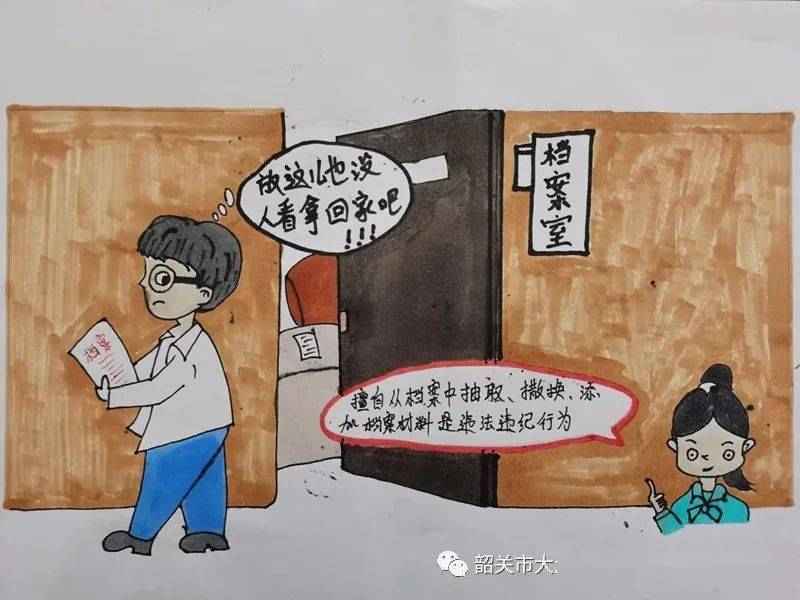 放这儿也没
人看拿回家吧
!!!
档案室
档案
擅自从档案中抽取、撤换、添
加档案材料是违法违纪行为
韶关市大